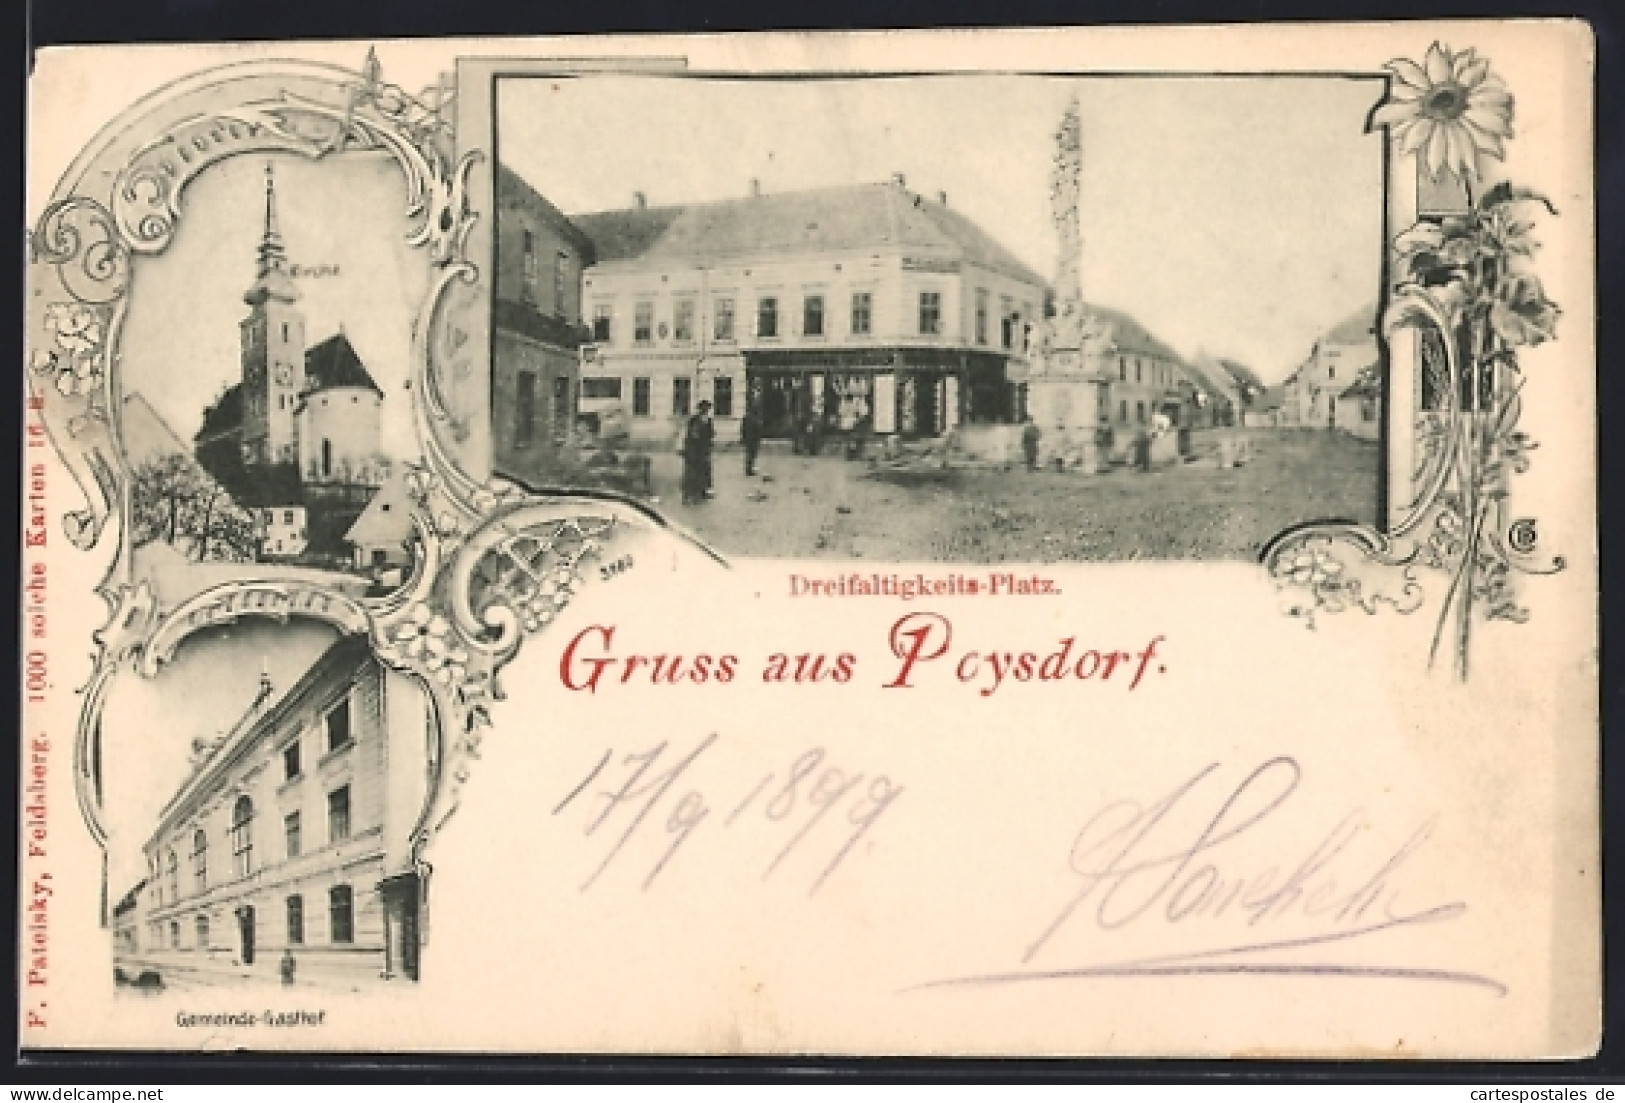 Kirche
3980
Dreifaltigkeits-Platz.
Gruss aus Poysdorf.
17/9 1899.
Gemeinde-Gasthof
F. Pateisky, Feldsberg. 1000 solche Karten 16 fl.
cartespostales de